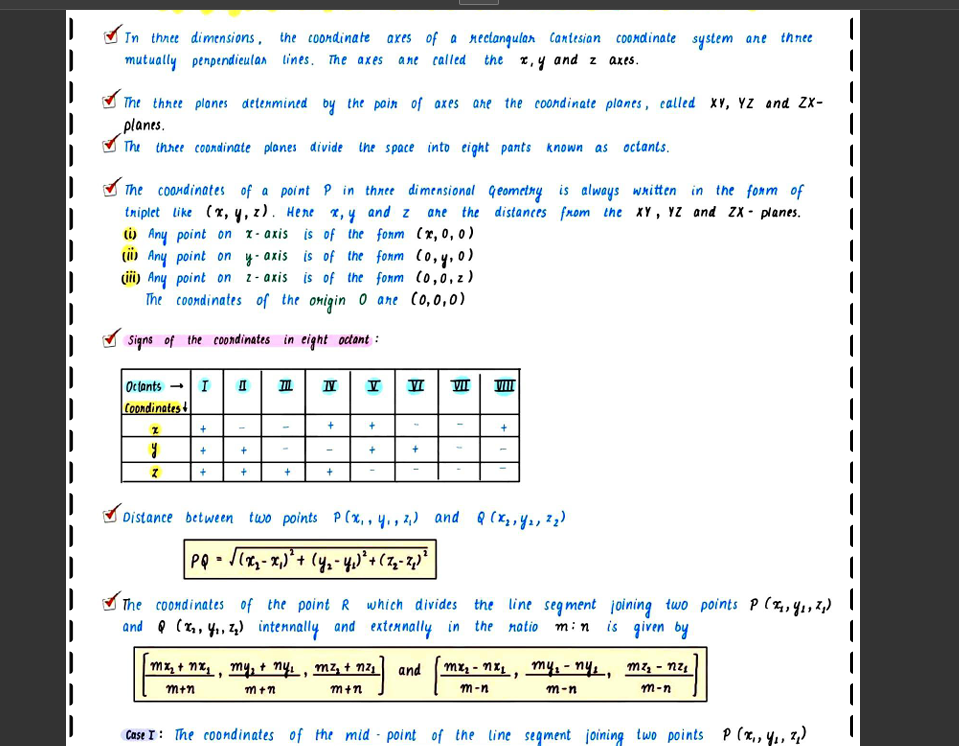 In three dimensions, the coordinate axes of a rectangular Cartesian coordinate system are three
mutually perpendicular lines. The axes are called the x, y and z axes.
The three planes determined by the pair of axes are the coordinate planes, called XY, YZ and ZX-
planes.
The three coordinate planes divide the space into eight parts known as octants.
The coordinates of a point P in three dimensional Geometry is always written in the form of
triplet like (x, y, z). Here x, y and z are the distances from the XY, YZ and ZX- planes.
(i) Any point on x-axis is of the form (x, 0, 0)
(ii) Any point on y-axis is of the form (0, y, 0)
(iii) Any point on z-axis is of the form (0, 0, z)
The coordinates of the origin O are (0, 0, 0)
Signs of the coordinates in eight octant :
Octants → I II III IV V VI VII VIII
Coordinates ↓
x + - - + + - - +
y + + - - + + - -
z + + + + - - - -
Distance between two points P(x₁, y₁, z₁) and Q(x₂, y₂, z₂)
PQ = √(x₂-x₁)² + (y₂-y₁)² + (z₂-z₁)²
The coordinates of the point R which divides the line segment joining two points P (x₁, y₁, z₁)
and Q (x₂, y₂, z₂) internally and externally in the ratio m:n is given by
[mx₂ + nx₁ / m+n, my₂ + ny₁ / m+n, mz₂ + nz₁ / m+n] and [mx₂ - nx₁ / m-n, my₂ - ny₁ / m-n, mz₂ - nz₁ / m-n]
Case I : The coordinates of the mid-point of the line segment joining two points P (x₁, y₁, z₁)